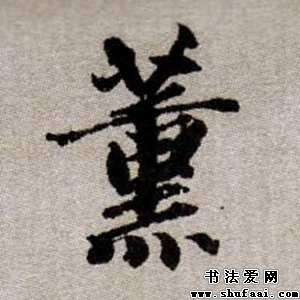 薰
书法爱网
www.shufaai.com